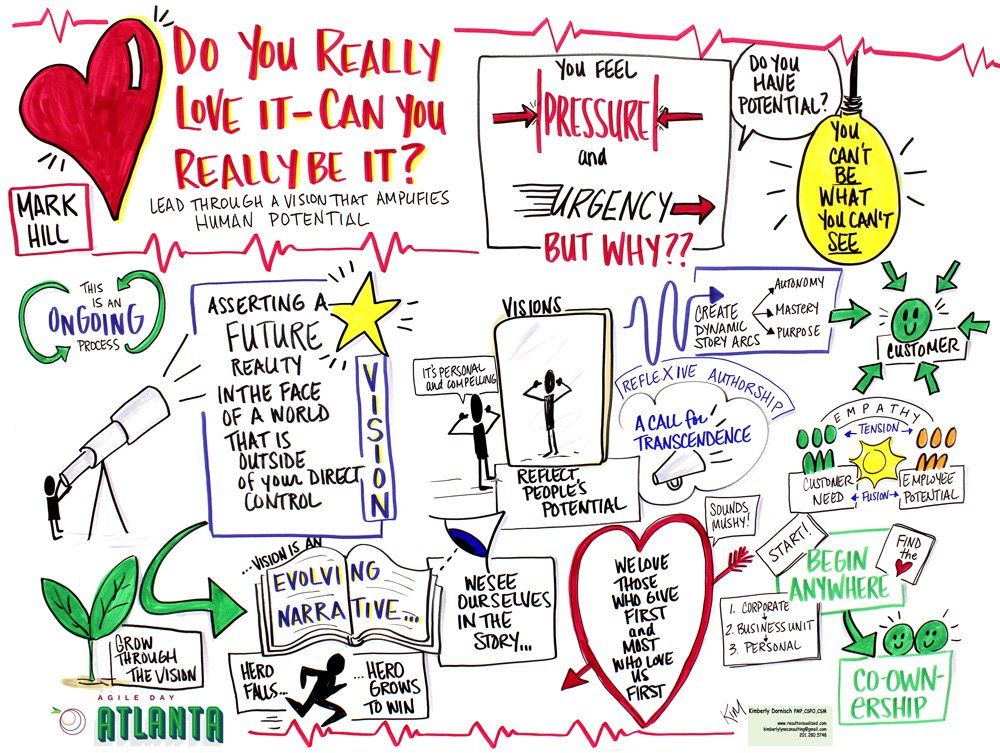 DO YOU REALLY
LOVE IT - CAN YOU
REALLY BE IT?
LEAD THROUGH A VISION THAT AMPLIFIES
HUMAN POTENTIAL
MARK
HILL
YOU FEEL
PRESSURE
and
URGENCY
BUT WHY??
DO YOU
HAVE
POTENTIAL?
YOU
CAN'T
BE
WHAT
YOU CAN'T
SEE
THIS
IS AN
ONGOING
PROCESS
ASSERTING A
FUTURE
REALITY
IN THE FACE
OF A WORLD
THAT IS
OUTSIDE
OF your DIRECT
CONTROL
VISION
VISIONS
IT'S PERSONAL
and COMPELLING
REFLECT
PEOPLE'S
POTENTIAL
CREATE
DYNAMIC
STORY ARCS
AUTONOMY
MASTERY
PURPOSE
CUSTOMER
REFLEXIVE AUTHORSHIP
A CALL for
TRANSCENDENCE
EMPATHY
TENSION
CUSTOMER
NEED
FUSION
EMPLOYEE
POTENTIAL
GROW
THROUGH
THE VISION
...VISION IS AN
EVOLVING
NARRATIVE...
WE SEE
OURSELVES
IN THE
STORY...
HERO
FALLS...
...HERO
GROWS
TO WIN
SOUNDS
MUSHY!
WE LOVE
THOSE
WHO GIVE
FIRST
and
MOST
WHO LOVE
US
FIRST
START!
BEGIN
ANYWHERE
FIND
the
1. CORPORATE
2. BUSINESS UNIT
3. PERSONAL
CO-OWN-
ERSHIP
AGILE DAY
ATLANTA
KIM
Kimberly Dornisch PMP, CSPO, CSM
www.resultsvisualized.com
kimberlylynnconsulting@gmail.com
201.280.5748